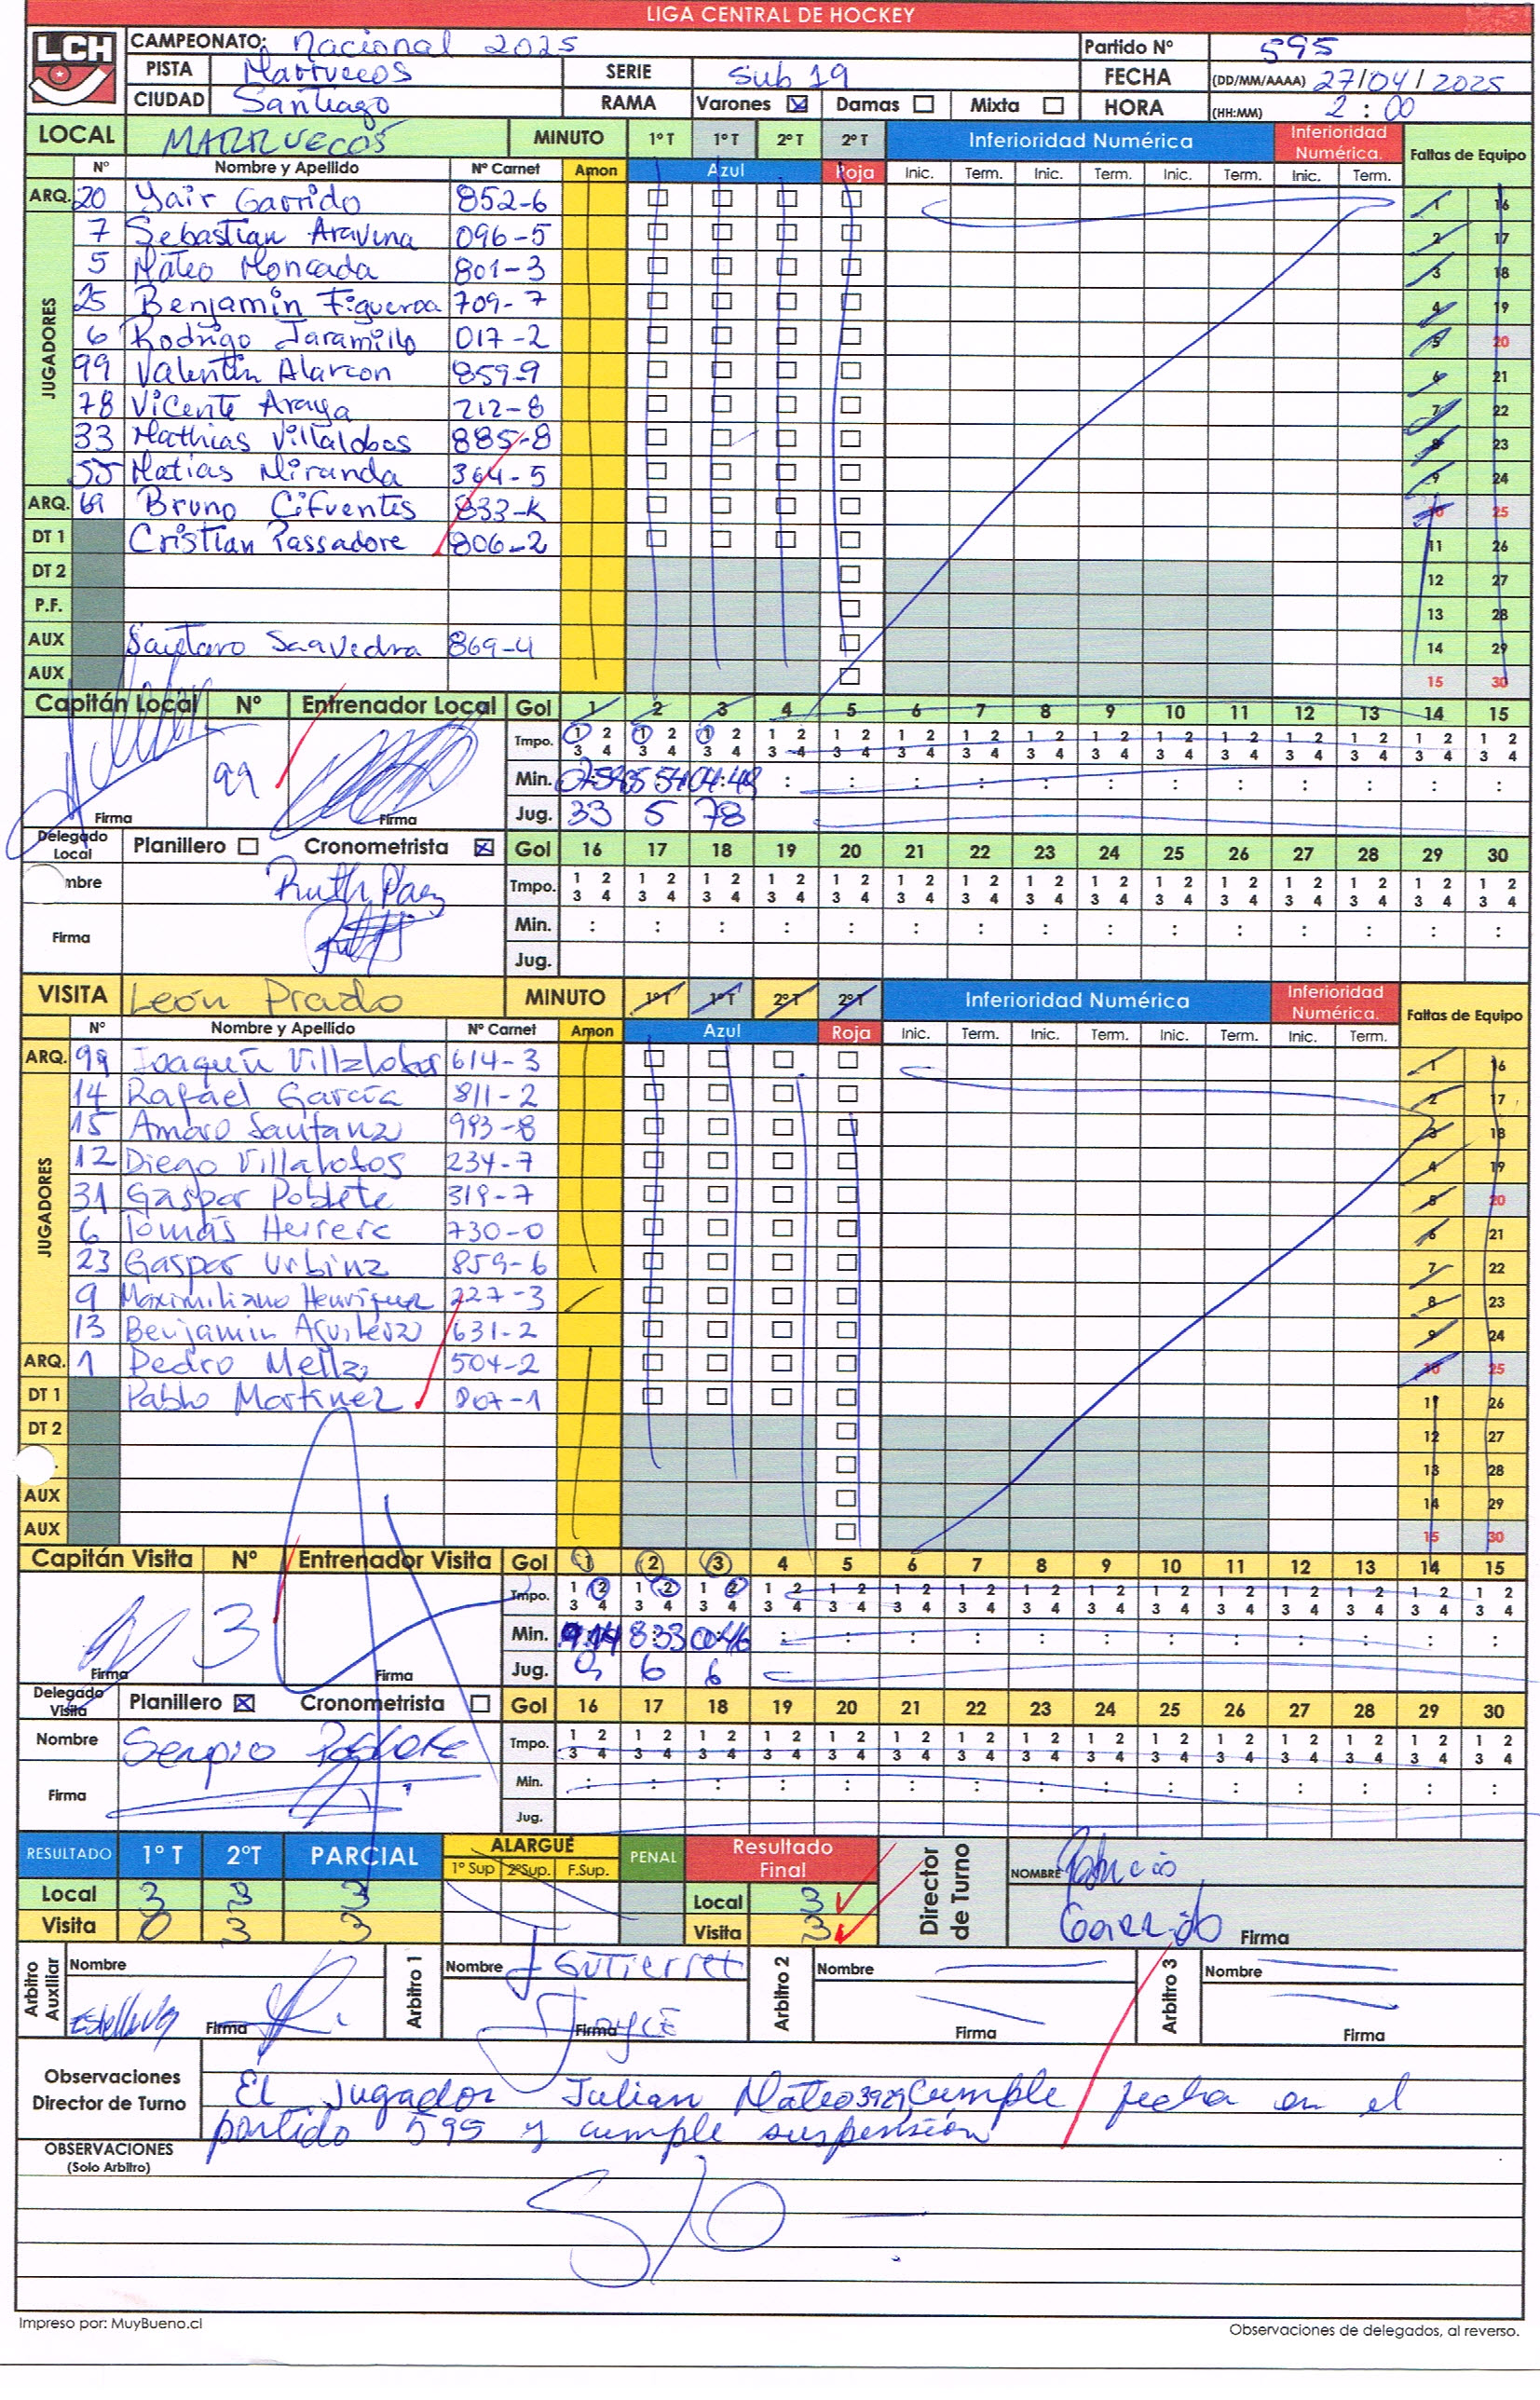 LIGA CENTRAL DE HOCKEY
LCH
CAMPEONATO: Nacional 2025 Partido Nº 595
PISTA Marruecos SERIE Sub 19 FECHA (DD/MM/AAAA) 27/04/2025
CIUDAD Santiago RAMA Varones ☒ Damas ☐ Mixta ☐ HORA (HH:MM) 2:00
LOCAL MARRUECOS MINUTO 1º T 1º T 2º T 2º T Inferioridad Numérica Inferioridad Numérica. Faltas de Equipo
Nº Nombre y Apellido Nº Carnet Amon Azul Roja Inic. Term. Inic. Term. Inic. Term. Inic. Term.
ARQ. 20 Yair Garrido 852-6 1 16
JUGADORES
7 Sebastian Aravena 096-5 2 17
5 Mateo Moncada 801-3 3 18
25 Benjamin Figueroa 709-7 4 19
6 Rodrigo Jaramillo 017-2 5 20
99 Valentin Alarcon 859-9 6 21
78 Vicente Araya 212-8 7 22
33 Mathias Villalobos 885-8 8 23
55 Matias Miranda 364-5 9 24
ARQ. 69 Bruno Cifuentes 833-K 10 25
DT 1 Cristian Passadore 806-2 11 26
DT 2 12 27
P.F. 13 28
AUX Saavedra 869-4 14 29
AUX 15 30
Capitán Local Nº Entrenador Local Gol 1 2 3 4 5 6 7 8 9 10 11 12 13 14 15
Tmpo. 1 2 1 2 1 2 1 2 1 2 1 2 1 2 1 2 1 2 1 2 1 2 1 2 1 2 1 2 1 2
3 4 3 4 3 4 3 4 3 4 3 4 3 4 3 4 3 4 3 4 3 4 3 4 3 4 3 4 3 4
99 Min. : : : : : : : : : : : :
Firma Firma Jug. 33 5 78
Delegado Local Planillero ☐ Cronometrista ☒ Gol 16 17 18 19 20 21 22 23 24 25 26 27 28 29 30
mbre Ruth Paez Tmpo. 1 2 1 2 1 2 1 2 1 2 1 2 1 2 1 2 1 2 1 2 1 2 1 2 1 2 1 2 1 2
3 4 3 4 3 4 3 4 3 4 3 4 3 4 3 4 3 4 3 4 3 4 3 4 3 4 3 4 3 4
Firma Min. : : : : : : : : : : : : : : :
Jug.
VISITA León Prado MINUTO 1º T 1º T 2º T 2º T Inferioridad Numérica Inferioridad Numérica. Faltas de Equipo
Nº Nombre y Apellido Nº Carnet Amon Azul Roja Inic. Term. Inic. Term. Inic. Term. Inic. Term.
ARQ. 99 Joaquín Villalobos 614-3 1 16
JUGADORES
14 Rafael García 811-2 2 17
15 Amaro Santana 993-8 3 18
12 Diego Villalobos 234-7 4 19
31 Gaspar Poblete 319-7 5 20
6 Tomás Herrera 730-0 6 21
23 Gaspar Urbina 859-6 7 22
9 Maximiliano Henriquez 227-3 8 23
13 Benjamin Aguilera 631-2 9 24
ARQ. 1 Pedro Mella 504-2 10 25
DT 1 Pablo Martinez 807-1 11 26
DT 2 12 27
. 13 28
AUX 14 29
AUX 15 30
Capitán Visita Nº Entrenador Visita Gol 1 2 3 4 5 6 7 8 9 10 11 12 13 14 15
Tmpo. 1 2 1 2 1 2 1 2 1 2 1 2 1 2 1 2 1 2 1 2 1 2 1 2 1 2 1 2 1 2
3 4 3 4 3 4 3 4 3 4 3 4 3 4 3 4 3 4 3 4 3 4 3 4 3 4 3 4 3 4
3 Min. 833 : : : : : : : : : : : :
Firma Firma Jug. 9 6 6
Delegado Visita Planillero ☒ Cronometrista ☐ Gol 16 17 18 19 20 21 22 23 24 25 26 27 28 29 30
Nombre Sergio Poblete Tmpo. 1 2 1 2 1 2 1 2 1 2 1 2 1 2 1 2 1 2 1 2 1 2 1 2 1 2 1 2 1 2
3 4 3 4 3 4 3 4 3 4 3 4 3 4 3 4 3 4 3 4 3 4 3 4 3 4 3 4 3 4
Firma Min. : : : : : : : : : : : : : : :
Jug.
RESULTADO 1º T 2ºT PARCIAL ALARGUE 1º Sup 2ºSup. F.Sup. PENAL Resultado Final Director de Turno NOMBRE Patricio
Local 3 3 3 Local 3
Visita 0 3 3 Visita 3 Garrido Firma
Arbitro Auxiliar Nombre Arbitro 1 Nombre J Gutierrez Arbitro 2 Nombre Arbitro 3 Nombre
Firma Firma Joyce Firma Firma
Observaciones Director de Turno El jugador Julian Mateo cumple fecha en el
partido 595 y cumple suspensión
OBSERVACIONES
(Solo Arbitro)
S/O
Impreso por: MuyBueno.cl Observaciones de delegados, al reverso.